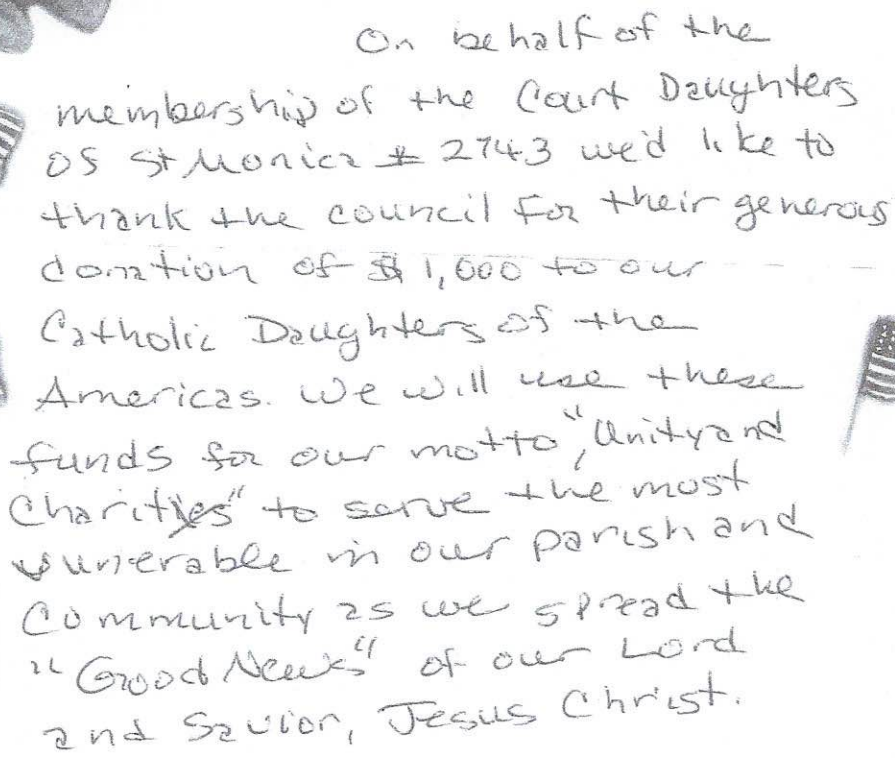 On behalf of the
membership of the Court Daughters
of St Monica # 2743 we'd like to
thank the council for their generous
donation of $1,000 to our
Catholic Daughters of the
Americas. We will use these
funds for our motto, "Unity and
Charity" to serve the most
vunerable in our parish and
Community as we spread the
"Good News" of our Lord
and Savior, Jesus Christ.